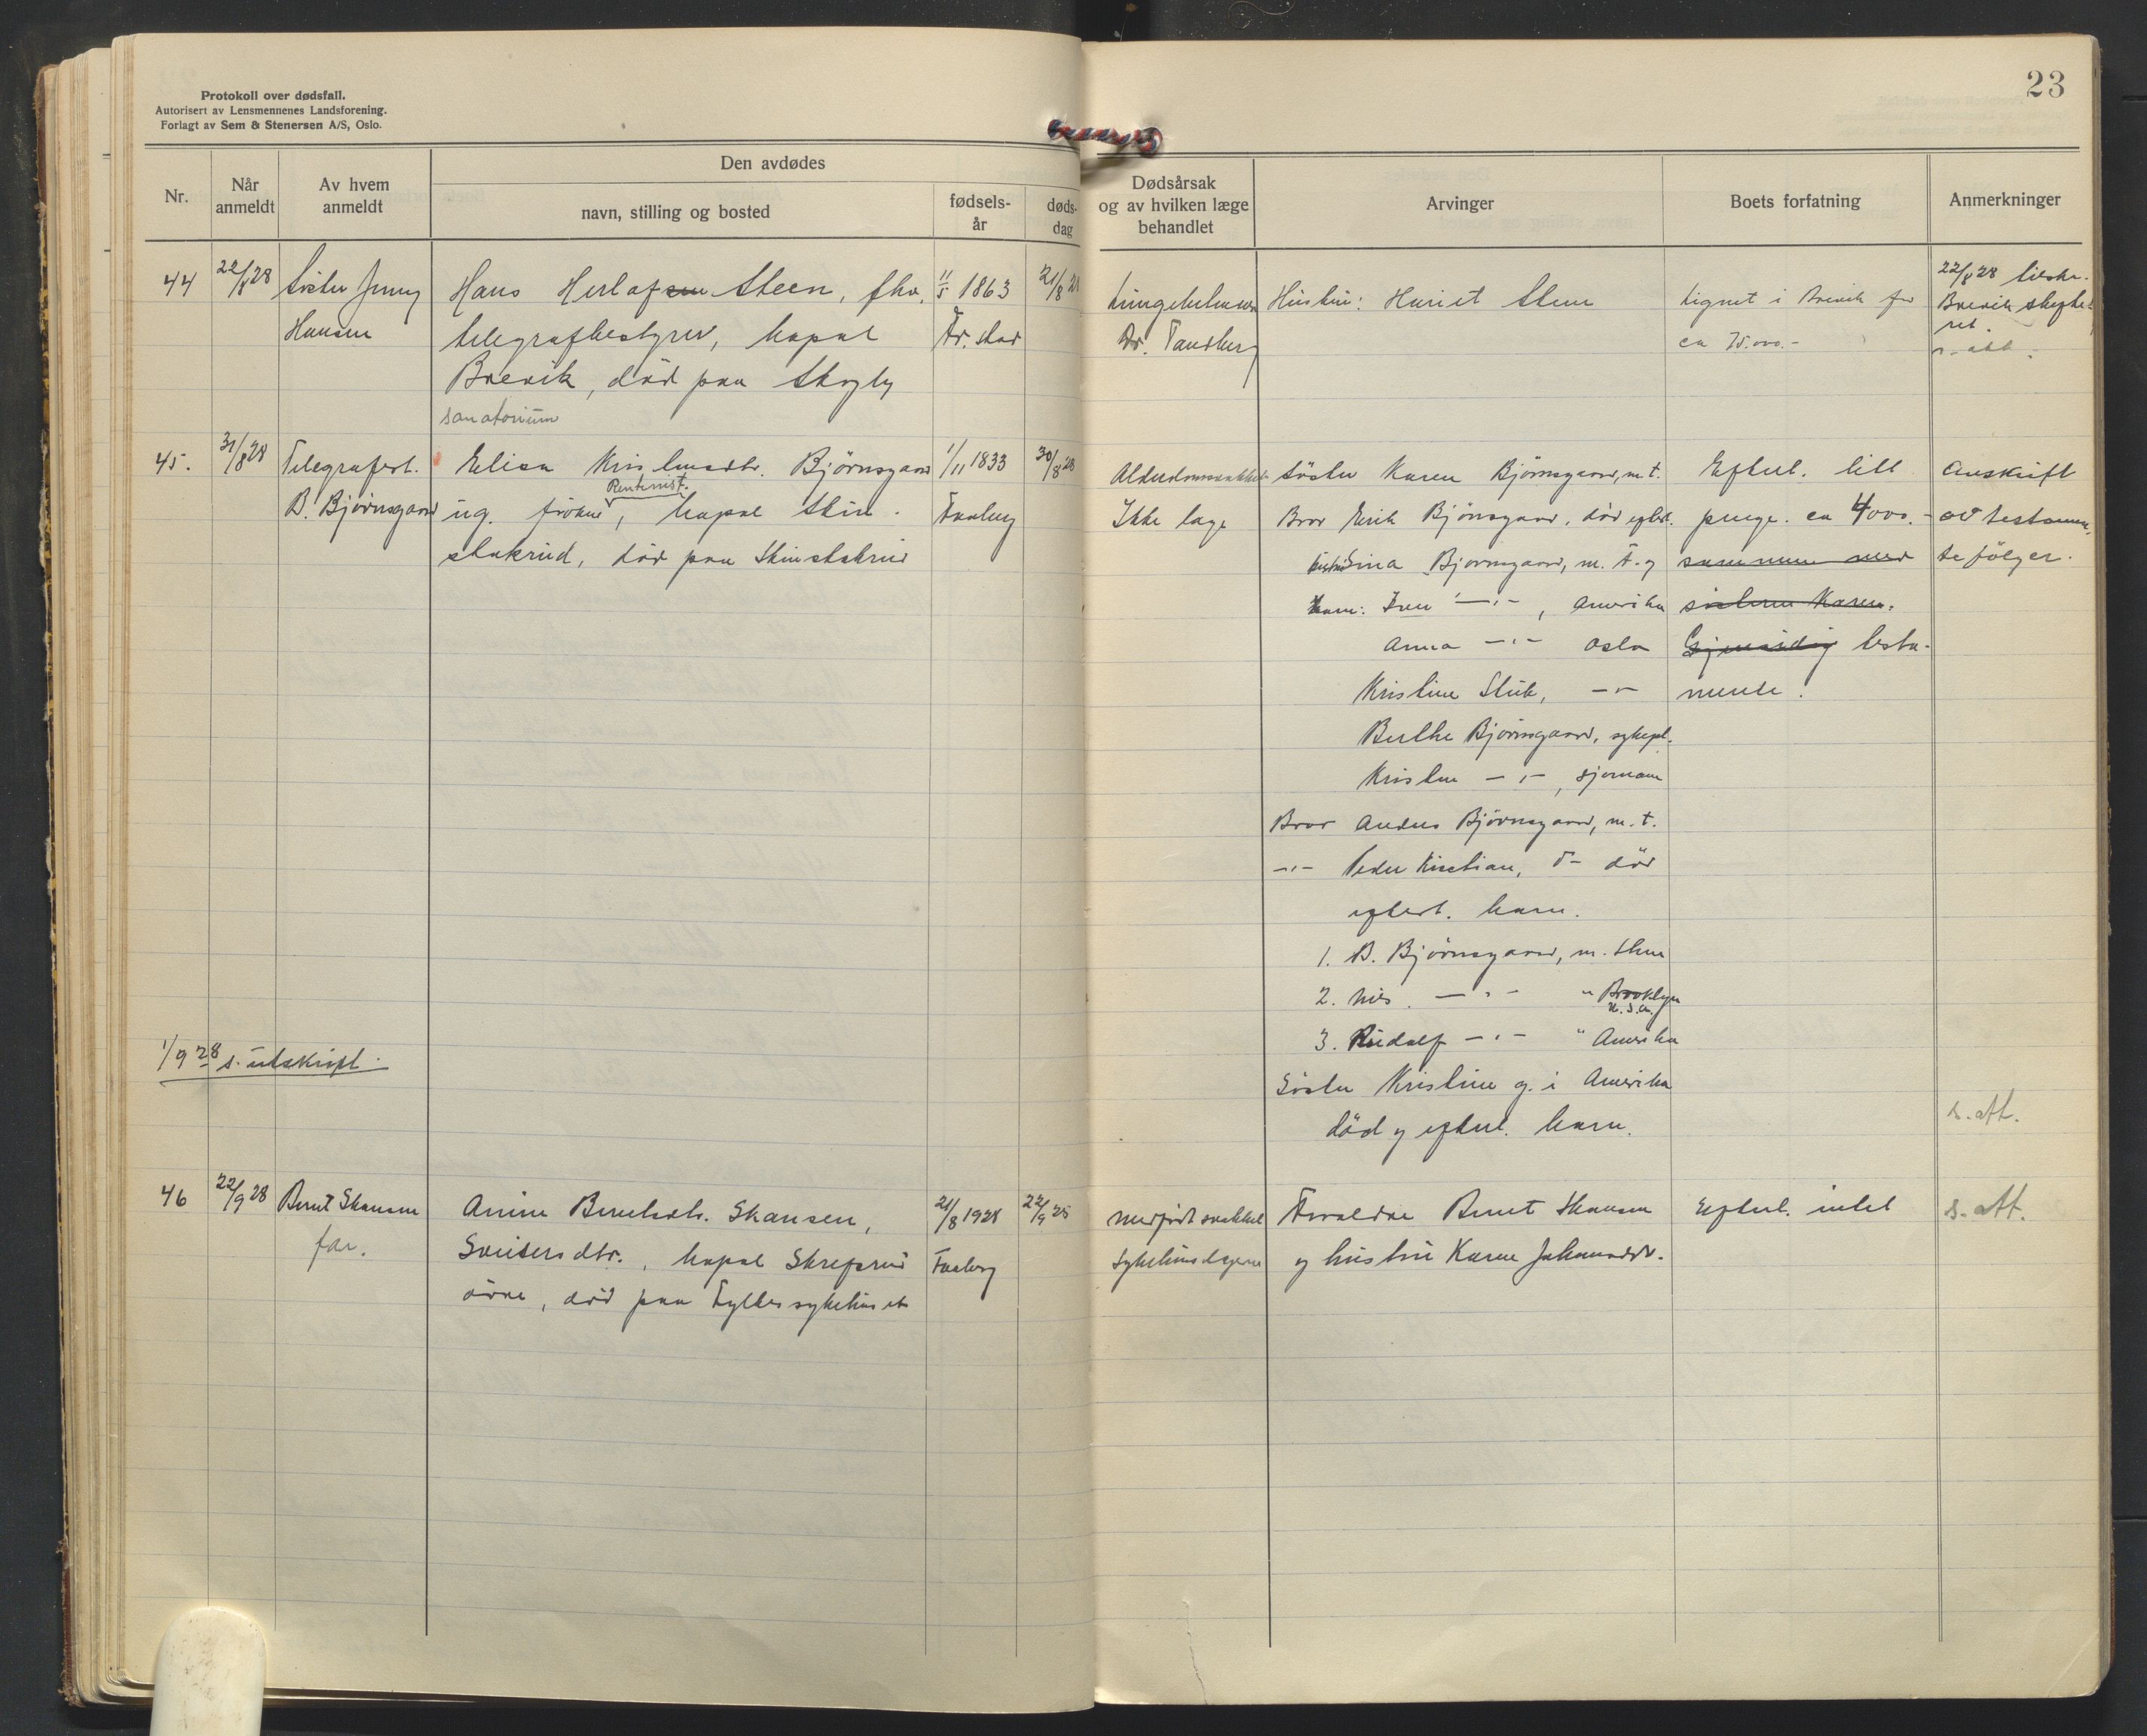 Protokoll over dødsfall.
Autorisert av Lensmennenes Landsforening.
Forlagt av Sem & Stenersen A/S, Oslo.
23
Nr.
Når anmeldt
Av hvem anmeldt
Den avdødes
navn, stilling og bosted
fødsels-år
døds-dag
Dødsårsak og av hvilken læge behandlet
Arvinger
Boets forfatning
Anmerkninger
44
22/8 28
Søster Jenny
Hansen
Hans Herlofsen Steen, fhv.
telegrafbestyrer, bopæl
Brevik, død paa Skogly
sanatorium
11/5 1863
21/8 28
Dr. Tandberg
Hustru: Hariet Steen
Lignet i Brevik for
ca 75.000.-
22/8 28
Brevik skifte-
ret.
s. att.
45.
31/8 28
Telegrafest.
B. Bjørnsgaard
Elisa Kristensdtr. Bjørnsgaard
Rentenist.
ug. frøken, bopæl Skin-
stakrud, død paa Skinstakrud
1/11 1833
Faaberg
30/8 28
Alderdomssvakhet
Ikke læge
Søster Karen Bjørnsgaard, m. t.
Bror Eirik Bjørnsgaard, død efterl.
hustru Sina Bjørnsgaard, m. t. og
barn: Iver -"-, Amerika
Anna -"- Oslo
Kristine Stub, -"-
Berthe Bjørnsgaard, sykepl.
Kristen -"-, sjømann
Bror Anders Bjørnsgaard, m. t.
-"- Peder Kristian, død
efterl. barn.
1. B. Bjørnsgaard, m. t. her
2. Nils -"- " Brooklyn
U.S.A.
3. Rudolf -"- " Amerika
Søster Kristine g. i Amerika
død og efterl. barn.
Efterl. litt
penge. ca 4000.-
sammen med
søsteren Karen.
Gjensidig testa-
mente.
Avskrift
av testamen-
te følger.
1/9 28 s. utskrift.
s. att.
46
22/9 28
Bernt Skansen
far.
Anine Berntsdtr. Skansen,
bopæl Skrefsrud
øvre, død paa Fylkessykehuset
21/8 1928
Faaberg
22/9 28
Medfødt svakhet
Sykehuslægene
Forældre Bernt Skansen
og hustru Karen Johansdtr.
Efterl. intet
s. att.